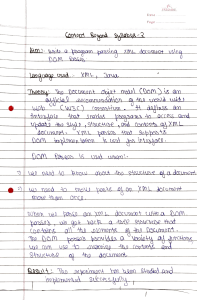 Content Beyond Syllabus-2
Aim: Write a program parsing XML document using
DOM parser
Language used - XML, Java
Theory: The Document object model (DOM) is an
official recommendation of the world wide
web (W3C) consortium. It defines an
interface that enables programs to access and
update the style, structure, and contents of XML
document. XML parsers that supports
DOM implement that interface.
DOM Parser is used when:-
1) We need to know about the structure of a document
2) We need to move parts of an XML document
more than once.
When we parse an XML document with a DOM
parser, we get back a tree structure that
contains all the elements of the document.
The DOM parser provides a variety of functions
we can use to examine the contents and
structure of the document.
Result: This experiment has been studied and
implemented successfully